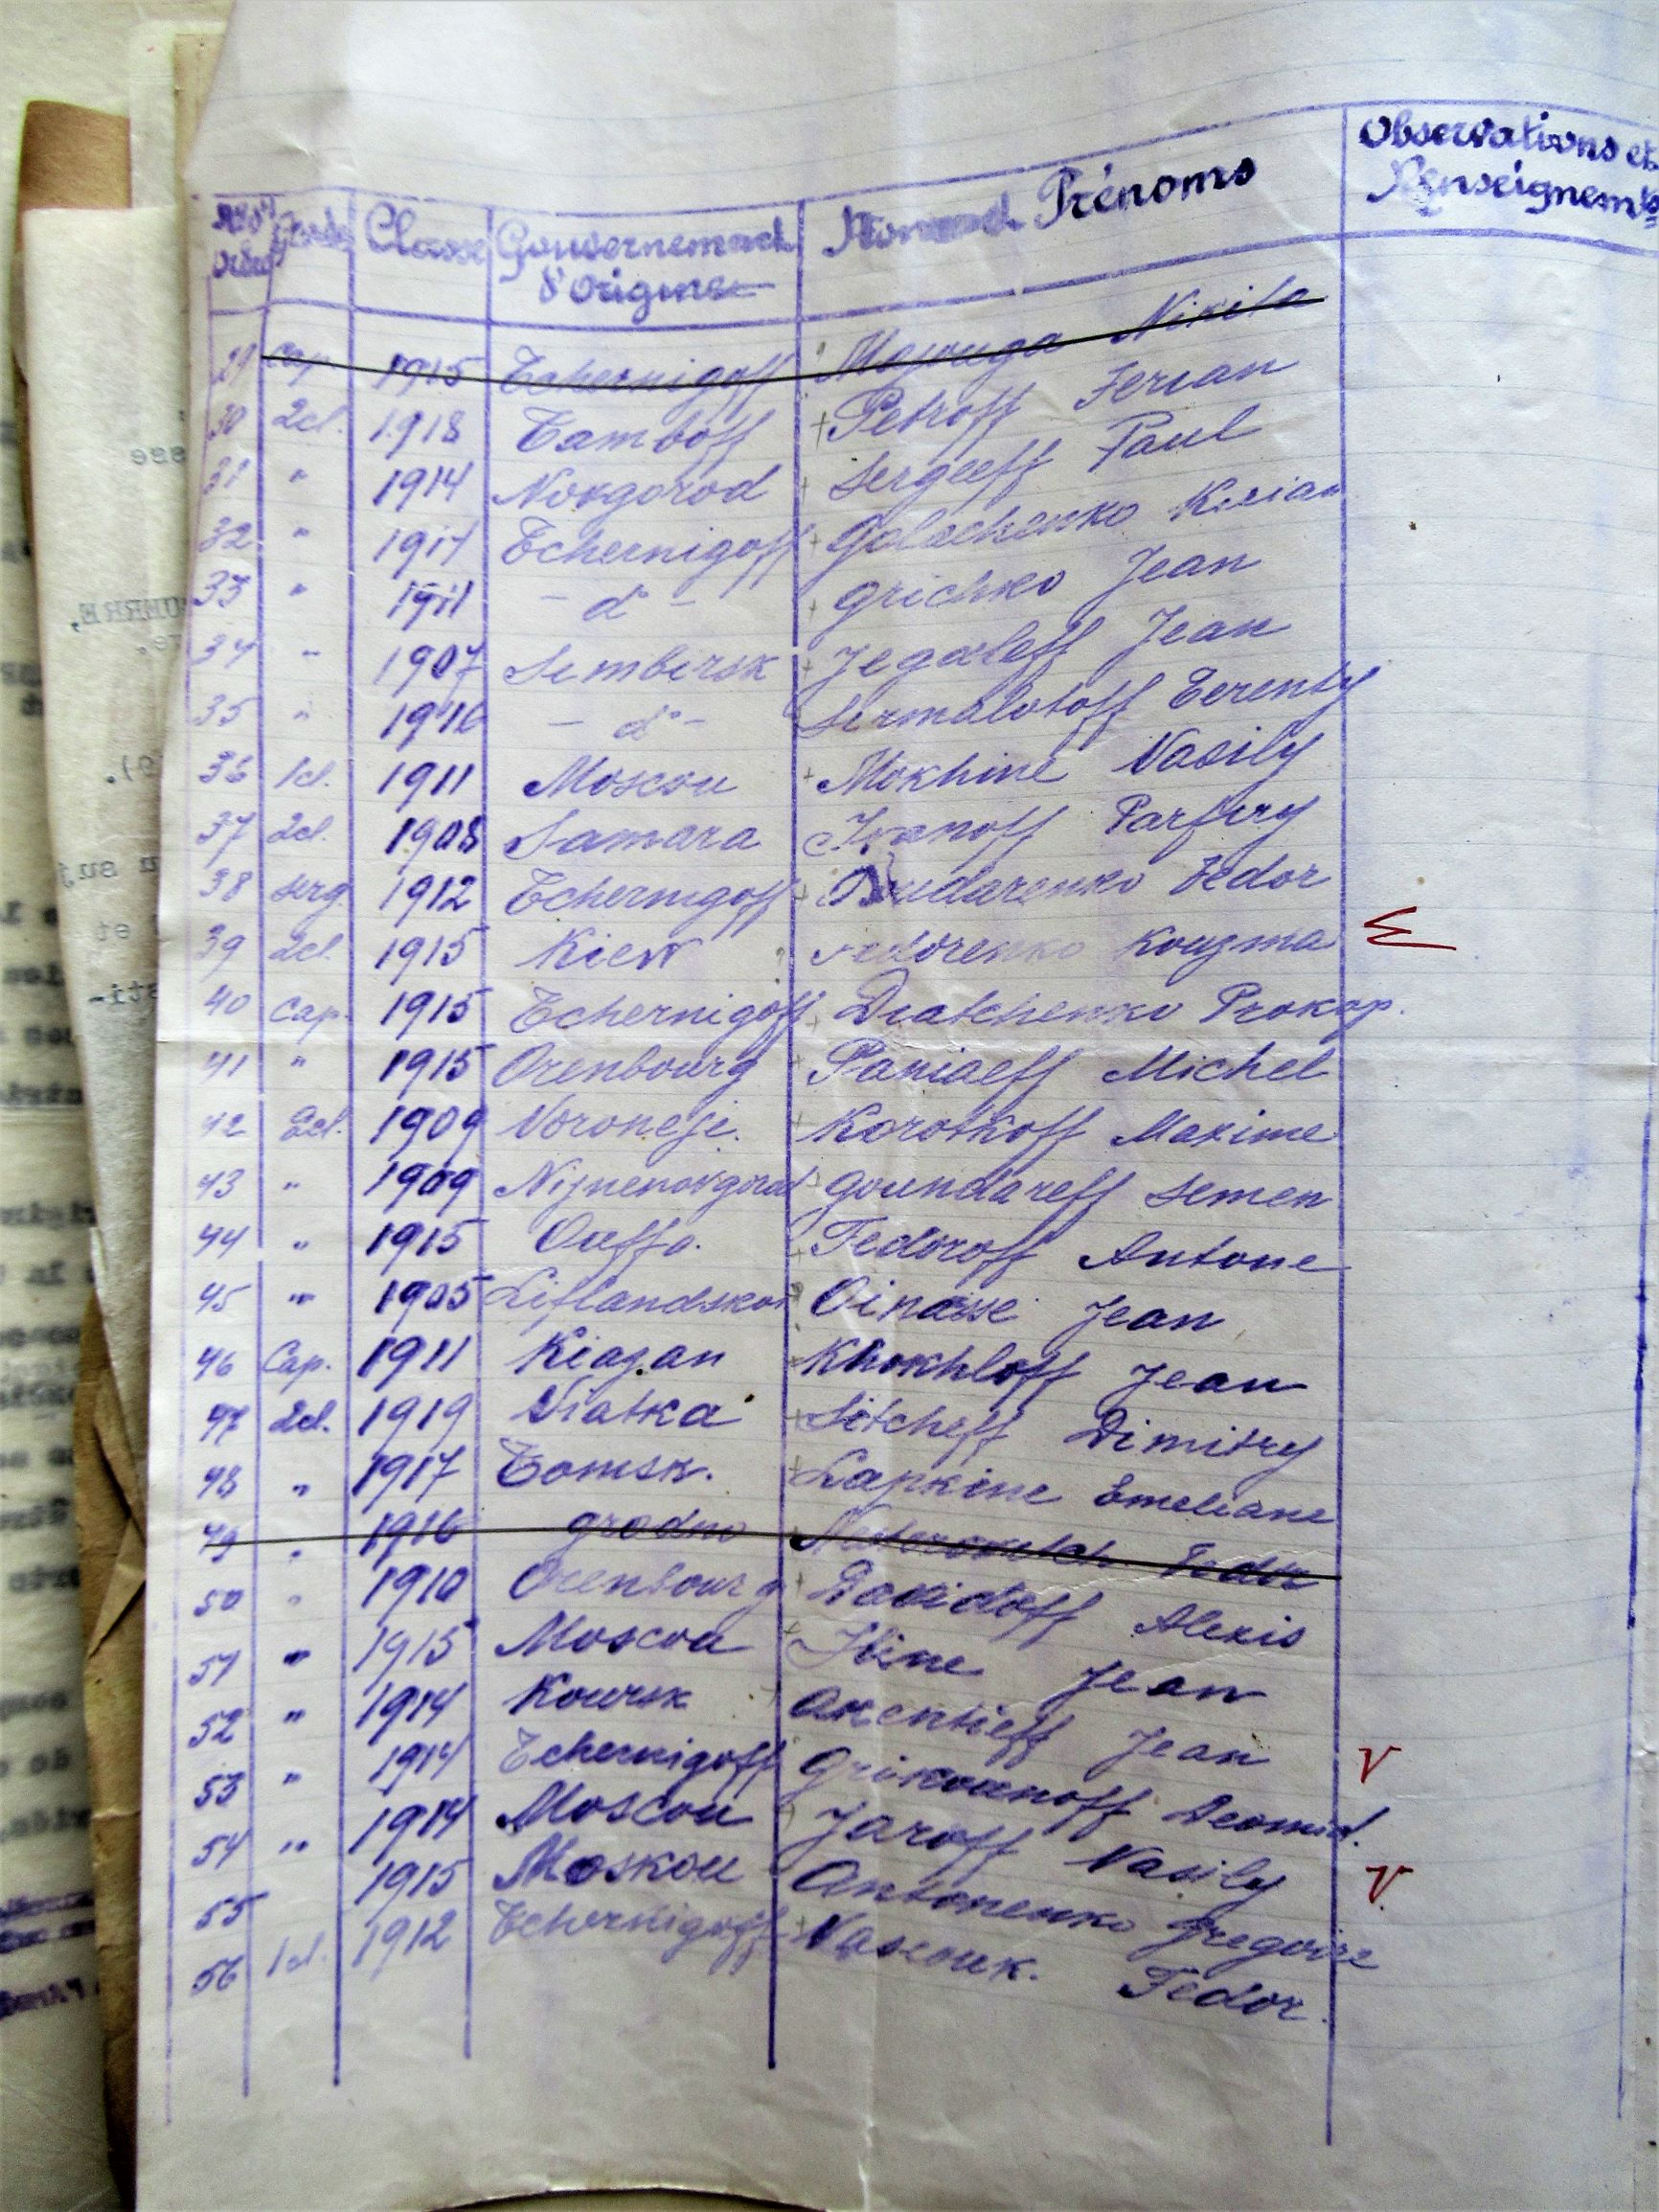 Nos Grades Classe Gouvernement Nom et Prénoms Observations et
Ordre d'origine Renseignemts
29 cap 1915 Tchernigoff Nikita
30 2cl. 1918 Tamboff + Petroff
31 " 1914 Novgorod + Sergeeff Paul
32 " 1911 Tchernigoff + Kirian
33 " 1911 - d° - + Grichko Jean
34 " 1907 Sembirsk + Jegaleff Jean
35 " 1916 - d° - Sermalotoff Terenty
36 1cl. 1911 Moscou + Mokhine Vasily
37 2cl. 1908 Samara Ivanoff Parfiry
38 serg. 1912 Tchernigoff + Boudarenko Fedor
39 2cl. 1915 Kiew ? Fedorenko Kouzma
40 Cap. 1915 Tchernigoff + Diatchenko Prokop.
41 " 1915 Orenbourg + Paniaeff Michel
42 2cl. 1909 Voroneje. + Korotkoff Maxime
43 " 1909 Nijnenovgorod + Goundareff Semen
44 " 1915 Ouffa. + Fedoroff Antone
45 " 1905 Liflandskoi Oinasse Jean
46 Cap. 1911 Riazan Khokhloff Jean
47 2cl. 1919 Viatka + Sitcheff Dimitry
48 " 1917 Tomsk. + Lapkine Emeliane
49 " 1916 grodno
50 " 1910 Orenbourg + Davidoff Alexis
51 " 1915 Moscou + Iline Jean
52 " 1914 Koursk + Axentieff Jean
53 " 1914 Tchernigoff Grikounoff Deomid. V
54 " 1914 Moscou + Jaroff Vasily
55 1915 Moskou Antonenko Gregoire V
56 1cl. 1912 Tchernigoff + Vasiouk. Fedor.